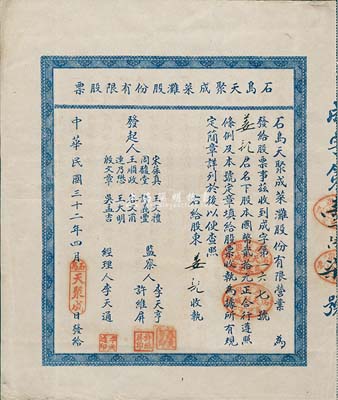 石島天聚成菜灘股份有限股票
石島天聚成菜灘股份有限營業 為
發給股票事茲收到成字第 六七號
益記君名下股本國幣貳拾元正合行遵照
條例及本號定章填給股票收執為據所有規
定簡章詳列於後以便查照
給股東 益記 收執
發起人
宋葆真
周馥堂
王順政
連乃懋
殷文章
王 禮
谷文甫
王大明
吳孟吉
監察人
李天亨
許維屏
經理人 李天通
中華民國三十二年四月 日發給
天聚成